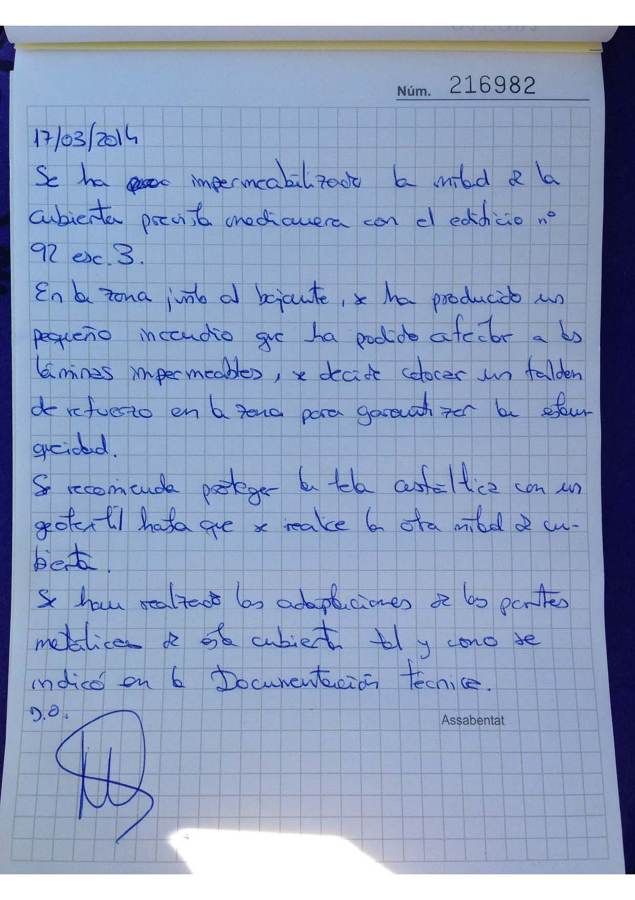 Núm. 216982
17/03/2014
Se ha impermeabilizado la mitad de la
cubierta prevista medianera con el edificio nº
92 esc. 3.
En la zona junto al bajante, se ha producido un
pequeño incendio que ha podido afectar a las
láminas impermeables, se decide colocar un faldón
de refuerzo en la zona para garantizar la estan-
queidad.
Se recomienda proteger la tela asfáltica con un
geotextil hasta que se realice la otra mitad de cu-
bierta.
Se han realizado las adaptaciones de las partes
metálicas de esta cubierta tal y como se
indicó en la Documentación técnica.
D.O.
Assabentat